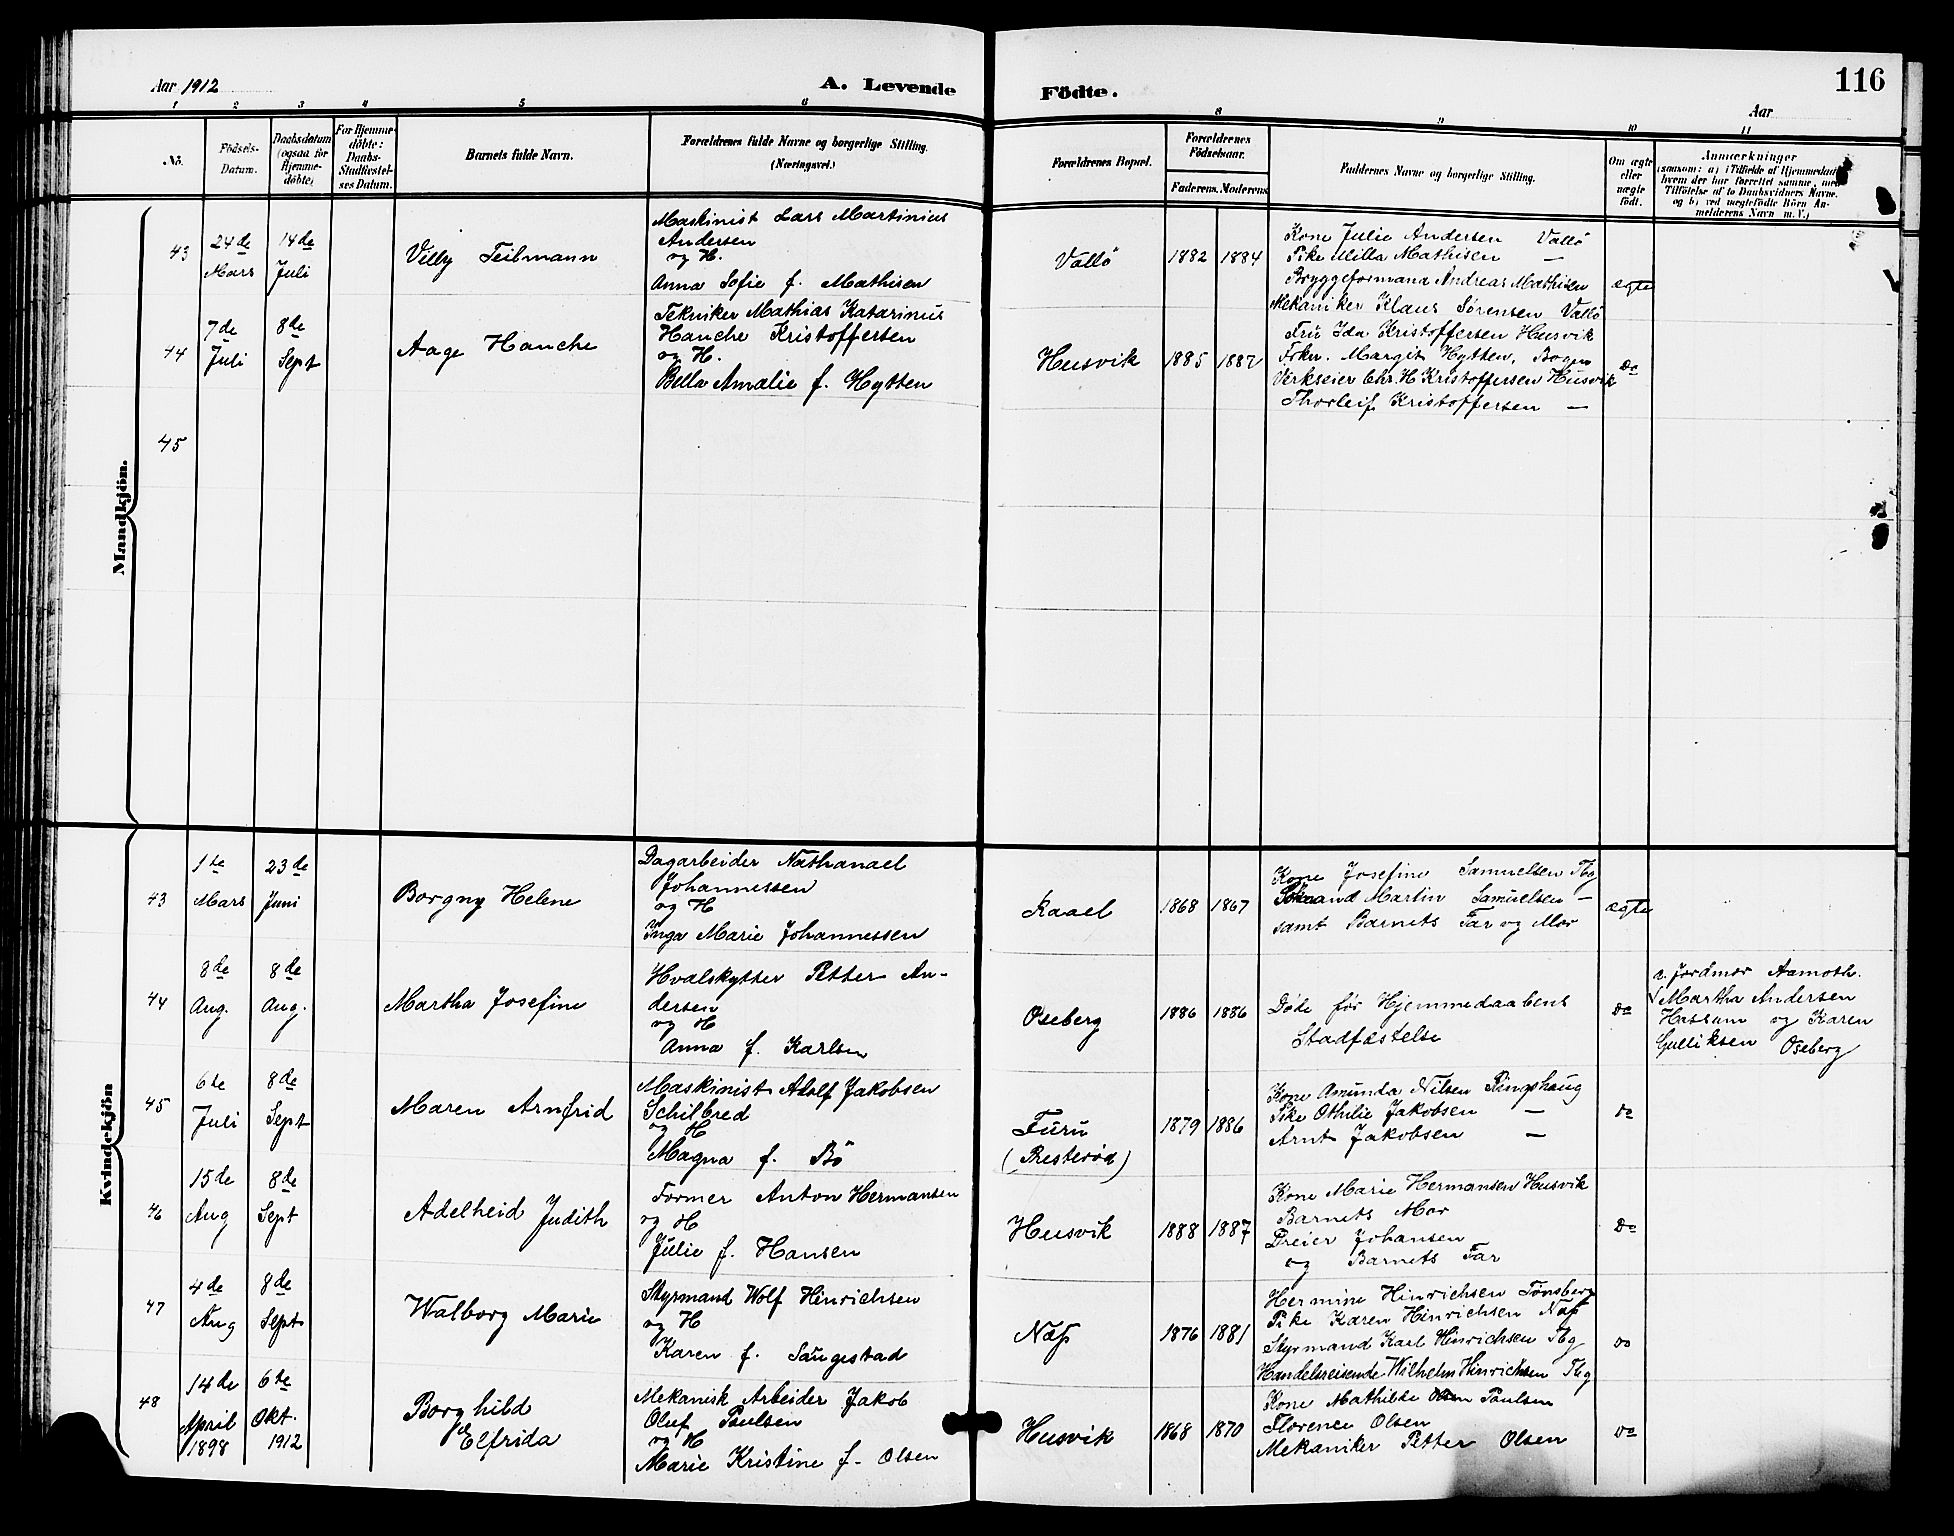 Aar 1912
A. Levende Födte.
116
Aar
1 2 3 4 5 6 8 9 10 11
No.
Födsels-Datum.
Daabsdatum (ogsaa for Hjemme-döbte)
For Hjemme-döbte: Daabs-Stadfæstel-ses Datum.
Barnets fulde Navn.
Forældrenes fulde Navne og borgerlige Stilling. (Næringsvei.)
Forældrenes Bopæl.
Forældrenes Födselsaar.
Faderens. Moderens.
Faddernes Navne og borgerlige Stilling.
Om ægte eller uægte födt.
Anmærkninger
(saasom: a) i Tilfælde af Hjemmedaab
hvem der har forrettet samme, med
Tilföielse af to Daabsvidners Navne.
og b) ved uægtefödte Börn An-
melderens Navn m. V.)
Mandkjön.
43
24de Mars
14de Juli
Villy Teilmann
Maskinist Lars Martinius
Andersen
og H.
Anna Sofie f. Mathisen
Vallö
1882 1884
Kone Julie Andersen Vallö
Pike Milla Mathisen —
Bryggeformand Andreas Mathisen
Mekaniker Klaus Sørensen Vallö
ægte
44
7de Juli
8de Sept
Aage Hanche
Tekniker Mathias Katarinus
Hanche Kristoffersen
og H.
Bella Amalie f. Hytten
Husvik
1885 1887
Fru Ida Kristoffersen Husvik
Frkn. Margit Hytten,
Verkseier Chr. H Kristoffersen Husvik
Thorleif Kristoffersen —
Do
45
Kvindekjön
43
1te Mars
23de Juni
Borgny Helene
Dagarbeider Nathanael
Johannessen
og H
Inga Marie Johannessen
Kaael
1868 1867
Kone Josefine Samuelsen Tbg
Martin Samuelsen —
samt Barnets Far og Mor
ægte
44
8de Aug.
8de Aug.
Martha Josefine
Hvalskytter Petter An-
dersen
og H
Anna f. Karlsen
Oseberg
1886 1886
Døde før Hjemmedaabens
Stadfæstelse
Do
v. Jordmor Aamoth.
Martha Andersen
Hassum og Karen
Gulliksen Oseberg
45
6te Juli
8de Sept
Maren Arnfrid
Maskinist Adolf Jakobsen
Schilbred
og H
Magna f. Bö
Furu
(Presterød)
1879 1886
Kone Amunda Nilsen Ringshaug
Pike Othilie Jakobsen —
Arnt Jakobsen —
Do
46
15de Aug
8de Sept
Adelheid Judith
Former Anton Hermansen
og H
Julie f. Hansen
Husvik
1888 1887
Kone Marie Hermansen Husvik
Barnets Mor
Dreier Johansen
og Barnets Far
Do
47
4de Aug
8de Sept
Walborg Marie
Styrmand Wolf Hinrichsen
og H
Karen f. Saugestad
Næs
1876 1881
Hermine Hinrichsen Tønsberg
Pike Karen Hinrichsen Næs
Styrmand Karl Hinrichsen Tbg
Handelsreisende Wilhelm Hinrichsen Tbg
Do
48
14de April 1898
6te Okt. 1912
Borghild
Elfrida
Mekanisk Arbeider Jakob
Oluf Paulsen
og H
Marie Kristine f. Olsen
Husvik
1868 1870
Kone Mathilde Paulsen
Florence Olsen
Mekaniker Petter Olsen
Do